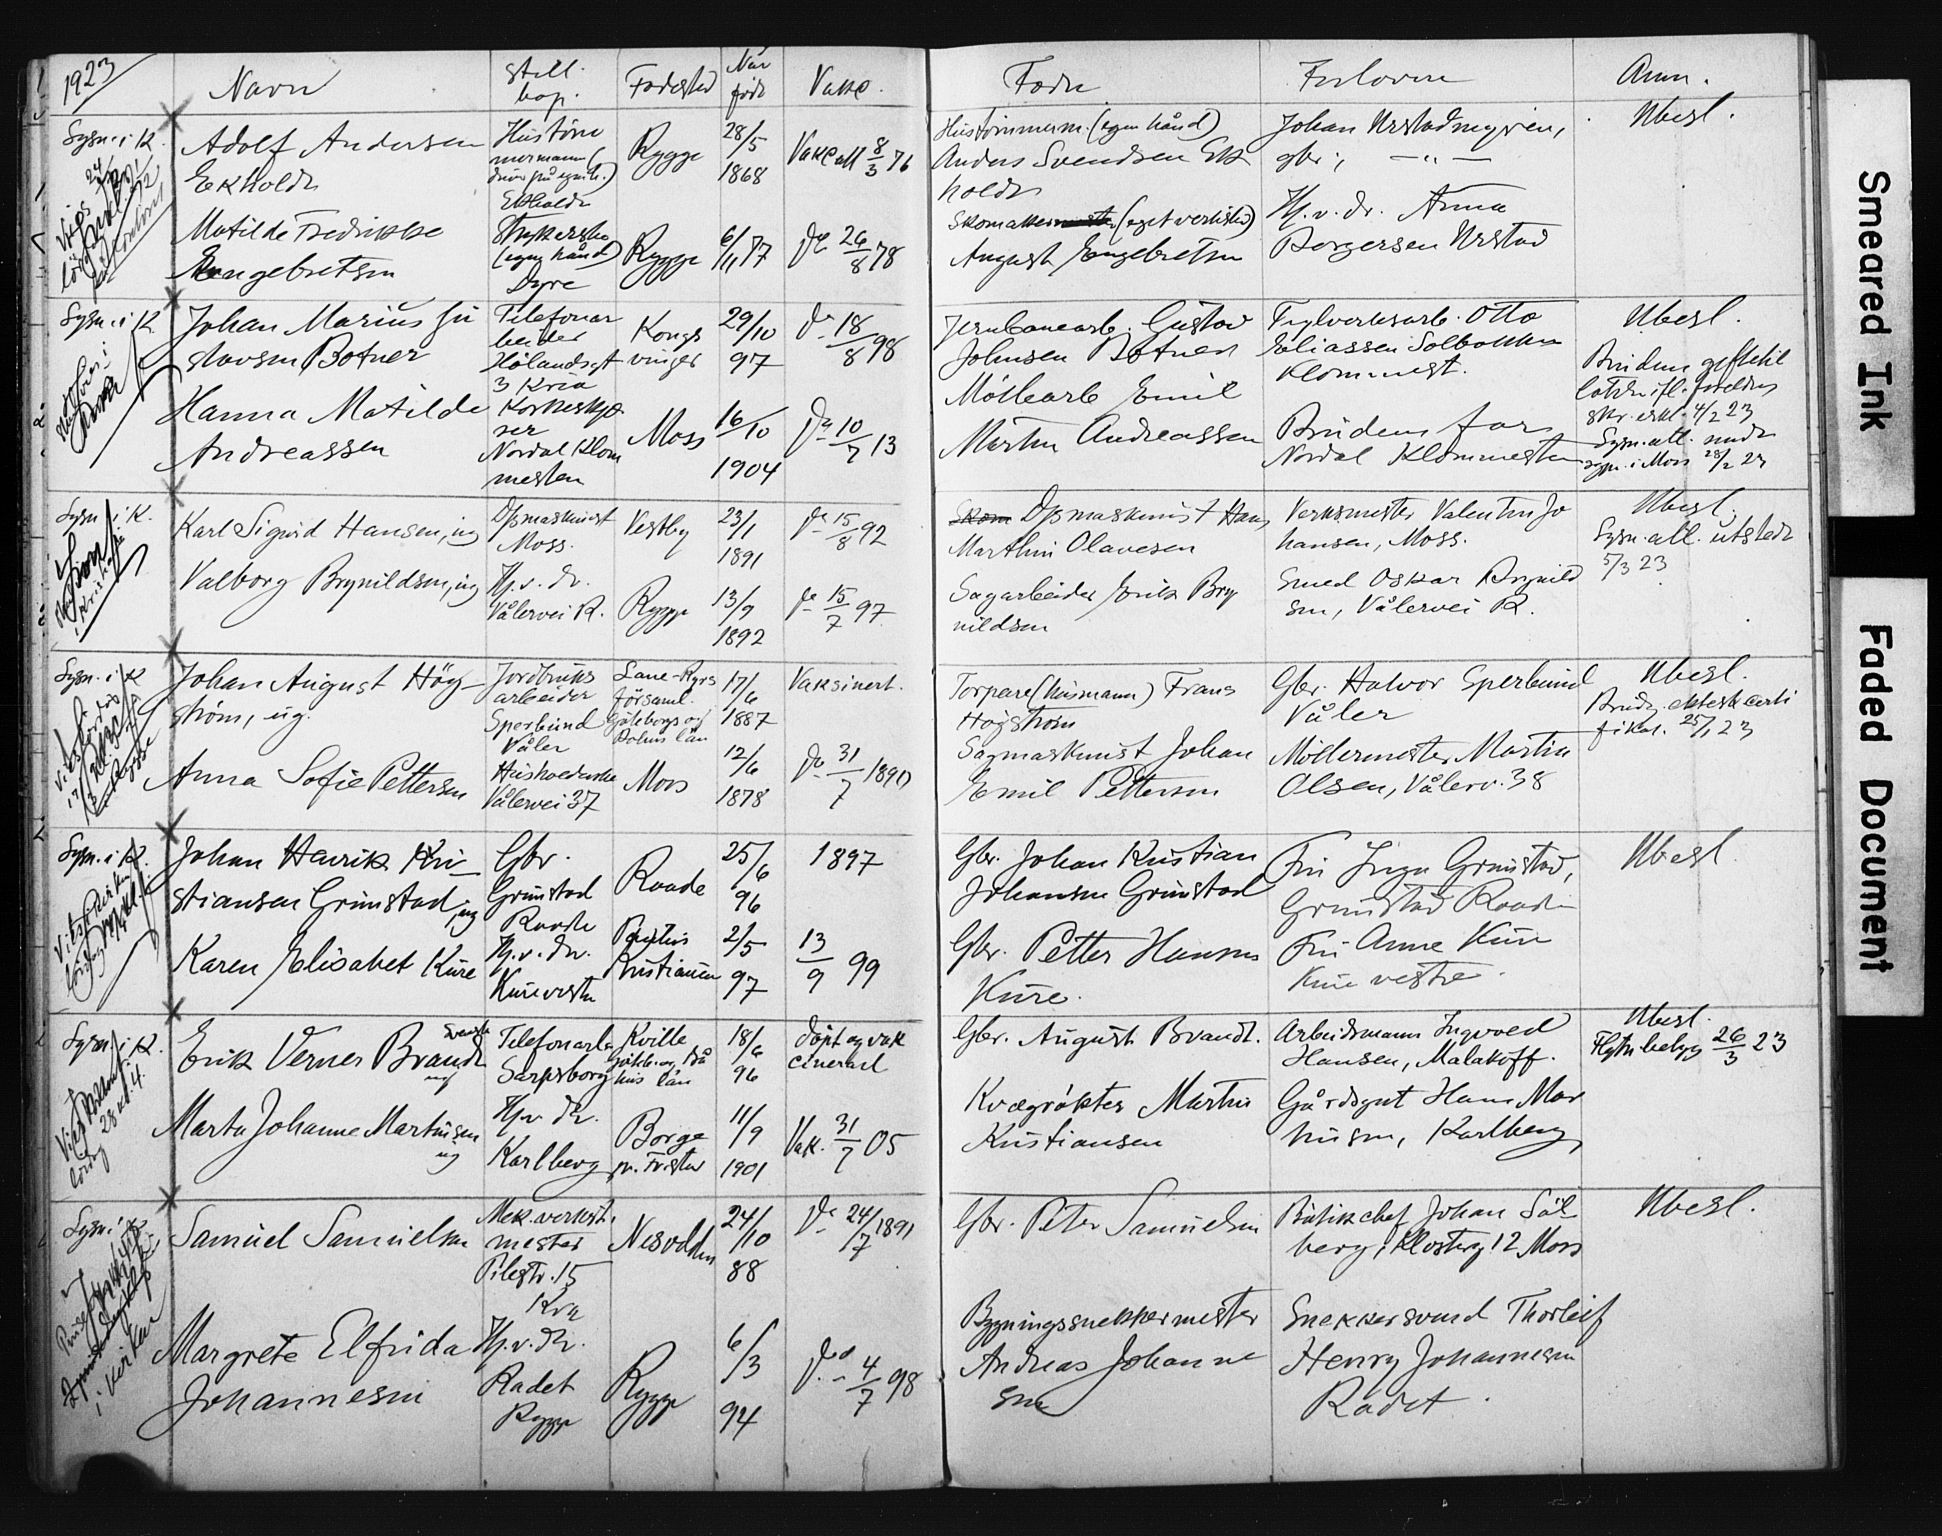 1923
Navn
Still.
bop.
Fødested
Når
født
Vakc.
Fader
Forlovere
Anm.
Lysn. i K.
Adolf Andersen
Ekholdt
Hustøm
mermann (
Ekholdt
Rygge
28/5
1868
Vakc. att 8/3 76
Hustømmerm. (egen hånd)
Anders Svendsen Ek
holdt
Johan Urstadmyren,
gbr.,
Ubesl.
Matilde Fredrikke
Engebretsen
Strykerske
(egen hånd)
Dyre
Rygge
6/11 77
Do 26/8 78
Skomaker (eget verksted)
August Engebretsen
Hj. v. dr. Anna
Borgersen Urstad
Lysn. i K.
Johan Marius Gu
stavsen Botner
Telefonar
beider
Hølandsgt
3 Kria
Kongs
vinger
29/10
97
Do 18/8 98
Jernbanearb. Gustav
Johnsen Botner
Teglverksarb. Otto
Eliassen Solbakken
Klommest.
Ubesl.
Hanna Matilde
Andreassen
Korkeskjæ
rer
Nordal Klom
mesten
Moss
16/10
1904
Do 10/7 13
Møllearb Emil
Martin Andreassen
Brudens far
Nordal Klommesten
skr. erkl. 4/2 23
Lysn. att. media
lysn. i Moss 28/2 23
Lysn. i K.
Karl Sigurd Hansen, ug
Dpmaskinist
Moss.
Vestby
23/1
1891
Do 15/8 92
Dpmaskinist Hans
Marthin Olavesen
Verksmester Valentin Jo
hansen, Moss.
Ubesl.
Lysn. att. utstedt
5/3 23
Valborg Brynildsen, ug
Hj. v. dr.
Vålervei R.
Rygge
13/9
1892
Do 15/7 97
Sagarbeider Erik Bry
nildsen
Smed Oskar Brynild
sen, Vålervei R.
Lysn. i K
Johan August Hög-
ström, ug.
Jordbruks
arbeider
Sperbund
Våler
Lane-Ryrs
församl.
Göteborgs og
Bohus län
17/6
1887
Vaksinert.
Torpare (husmann) Frans
Högström
Gbr. Halvor Sperbund
Våler
Ubesl.
Brudg. ektesk. certi
fikat. 25/1 23
Anna Sofie Pettersen
Husholderske
Vålervei 37
Moss
12/6
1878
Do 31/7 1890
Sagmaskinist Johan
Emil Pettersen
Møllermester Martin
Olsen, Vålerv. 38
Lysn. i K.
Johan Henrik Kri-
stiansen Grimstad, ug
Gbr.
Grimstad
Raade
Raade
25/6
96
1897
Gbr. Johan Kristian
Johansen Grimstad
Fru Inga Grimstad,
Grimstad Raade
Ubesl.
Karen Elisabet Kure
Hj. v. dr.
Kure vestre
Paulus
Kristiania
2/5
97
13/9 99
Gbr. Petter Hansen
Kure.
Fru Anne Kure
Kure vestre.
Lysn. i K.
Erik Verner Brandt
svensk
ug
Telefonarb.
Sarpsborg
Kville
Göteb. og Bå
hus län
18/6
96
Döpt og vak
cinerad
Gbr. August Brandt.
Arbeidsmann Ingvald
Hansen, Malakoff.
Ubesl.
Flytn. betyg 26/3 23
Marta Johanne Martinsen
ug
Hj. v. dr.
Karlberg
Borge
pr. Fr.stad
11/9
1901
Vak. 31/7 05
Kvægrøkter Martin
Kristiansen
Gårdsgut Hans Mar
tinsen, Karlberg
Lysn. i K.
Samuel Samuelsen
Mek. verkst.
mester
Pilestr. 15
Kria
Nesodden
24/10
88
Do 24/7 1891
Gbr. Peter Samuelsen
Butikchef Johan Søl
berg, Klosterg 12 Moss
Ubesl.
i kirken
Margrete Elfrida
Johannesen
Hj. v. dr.
Rådet
Rygge
Rygge
6/3
94
Do 4/7 98
Bygningssnekkermester
Andreas Johanne
sen
Snekkersvend Thorleif
Henry Johannesen
Rådet.
Smeared Ink
Faded Document